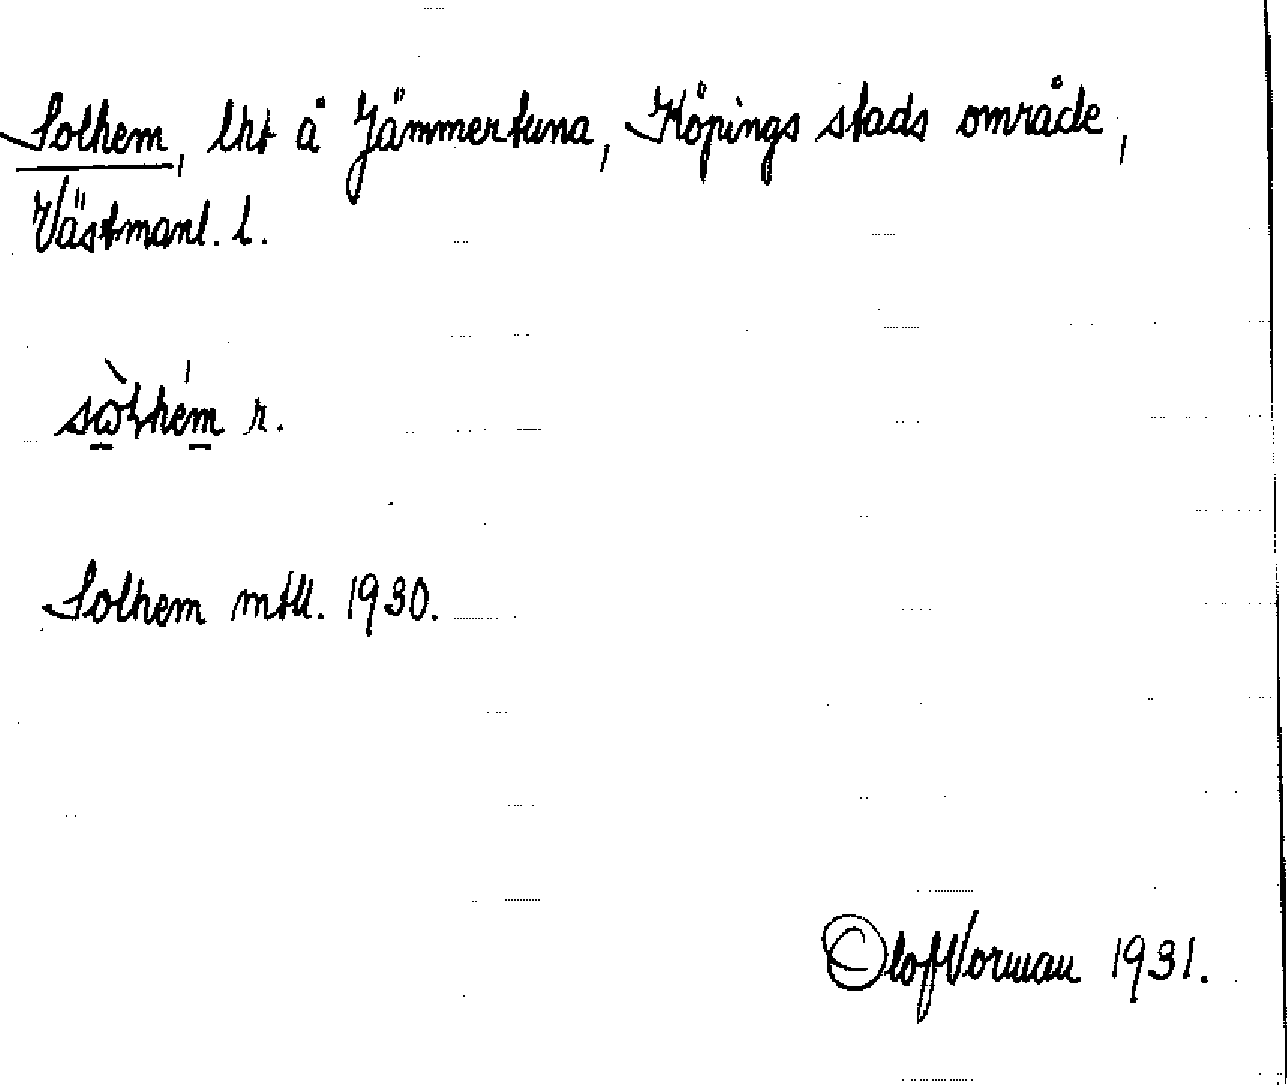 Solhem, lht å Jämmertuna, Köpings stads område,
Västmanl. l.
sòlhém r.
Solhem mtll. 1930.
Olof Vorman 1931.